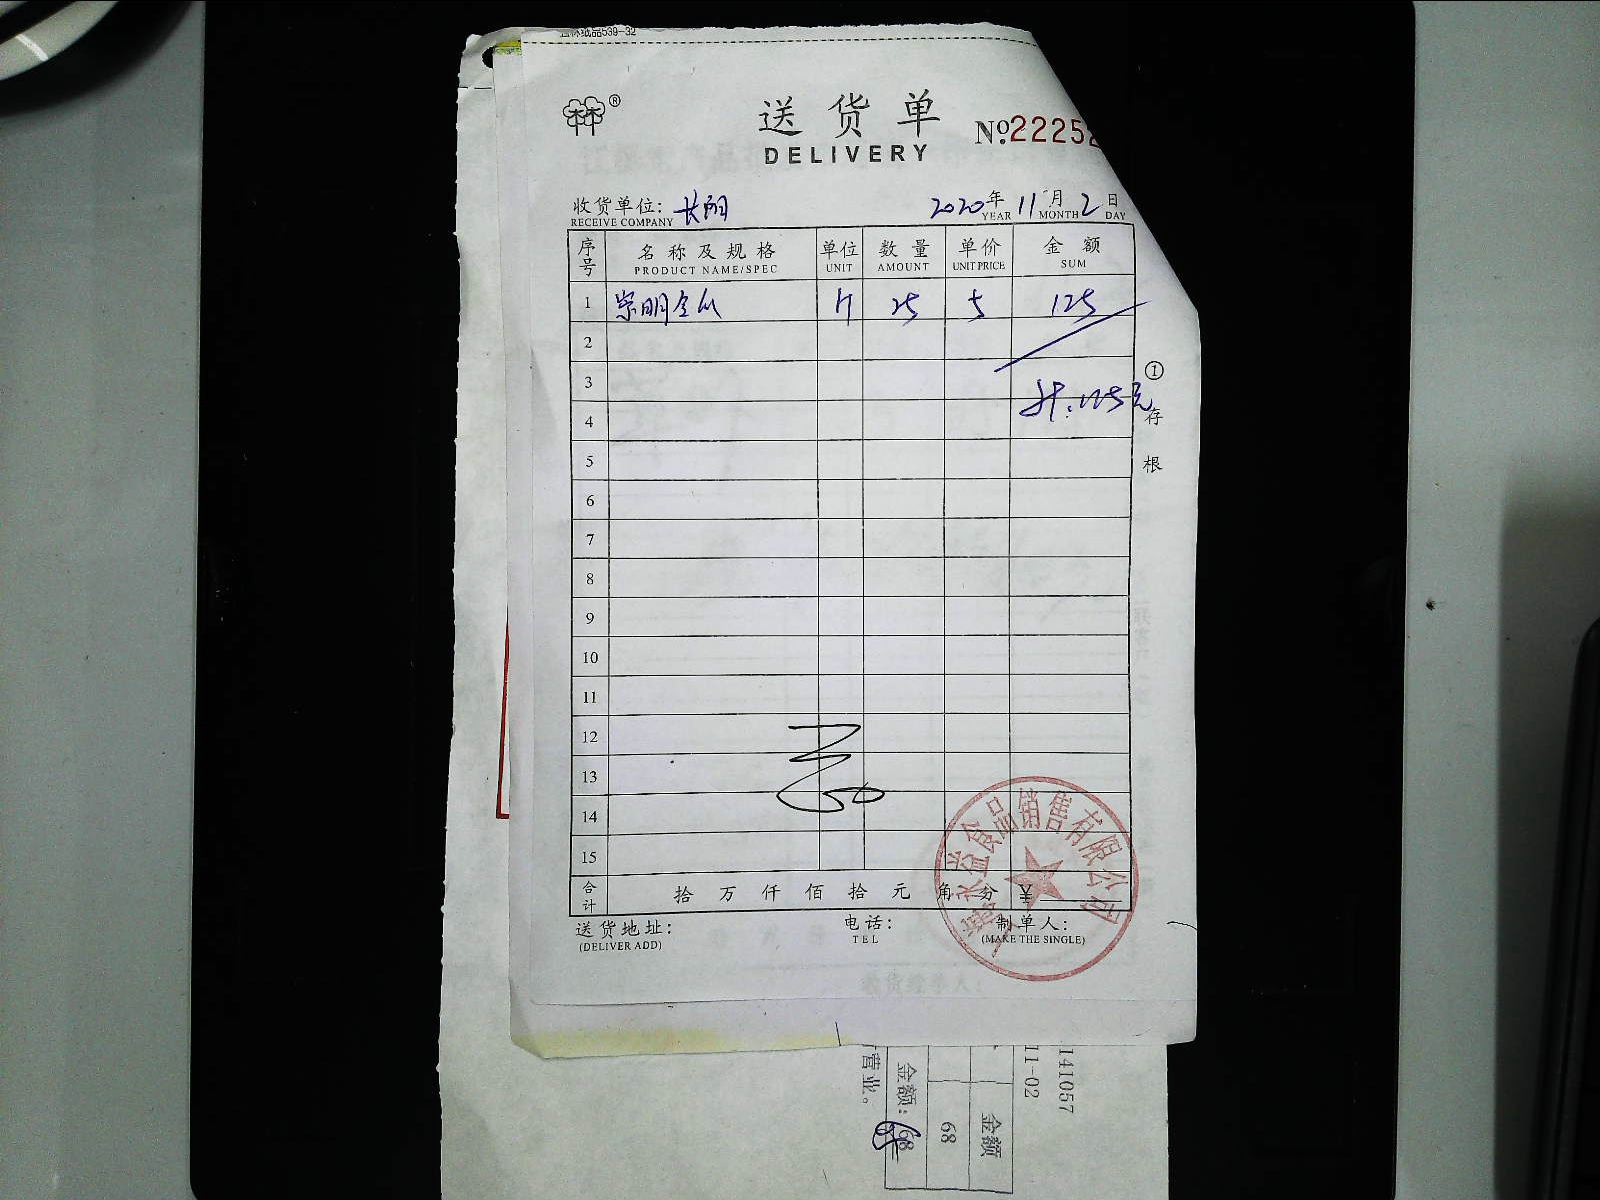 吉林纸品539-32
®
送货单
DELIVERY
№22252
收货单位: 长阳
RECEIVE COMPANY
2020年 11月 2日
YEAR MONTH DAY
序号 名称及规格 单位 数量 单价 金额
PRODUCT NAME/SPEC UNIT AMOUNT UNIT PRICE SUM
1 崇明金瓜 斤 25 5 125
2
3
计:125元
4
5
6
7
8
9
10
11
12
13
14
15
①存根
合计 拾万仟佰拾元角分 ¥
送货地址:
(DELIVER ADD)
电话:
TEL
制单人:
(MAKE THE SINGLE)
益食品销售有限公司
141057
11-02
金额
68
金额: 68
营业。